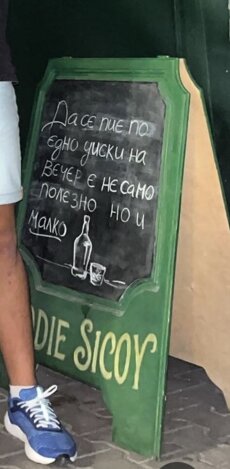 Да се пие по
едно уиски на
вечер е не само
полезно но и
малко
DIE SICOY